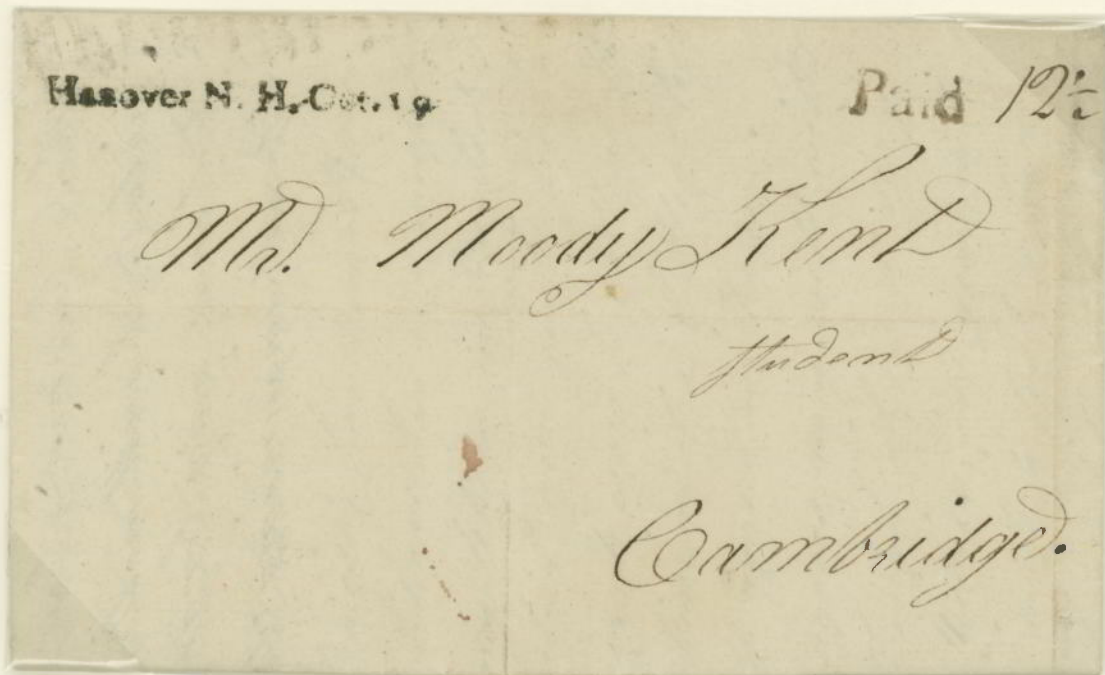 Hanover N. H. Oct. 19
Paid 12½
Mr. Moody Kent
Student
Cambridge.